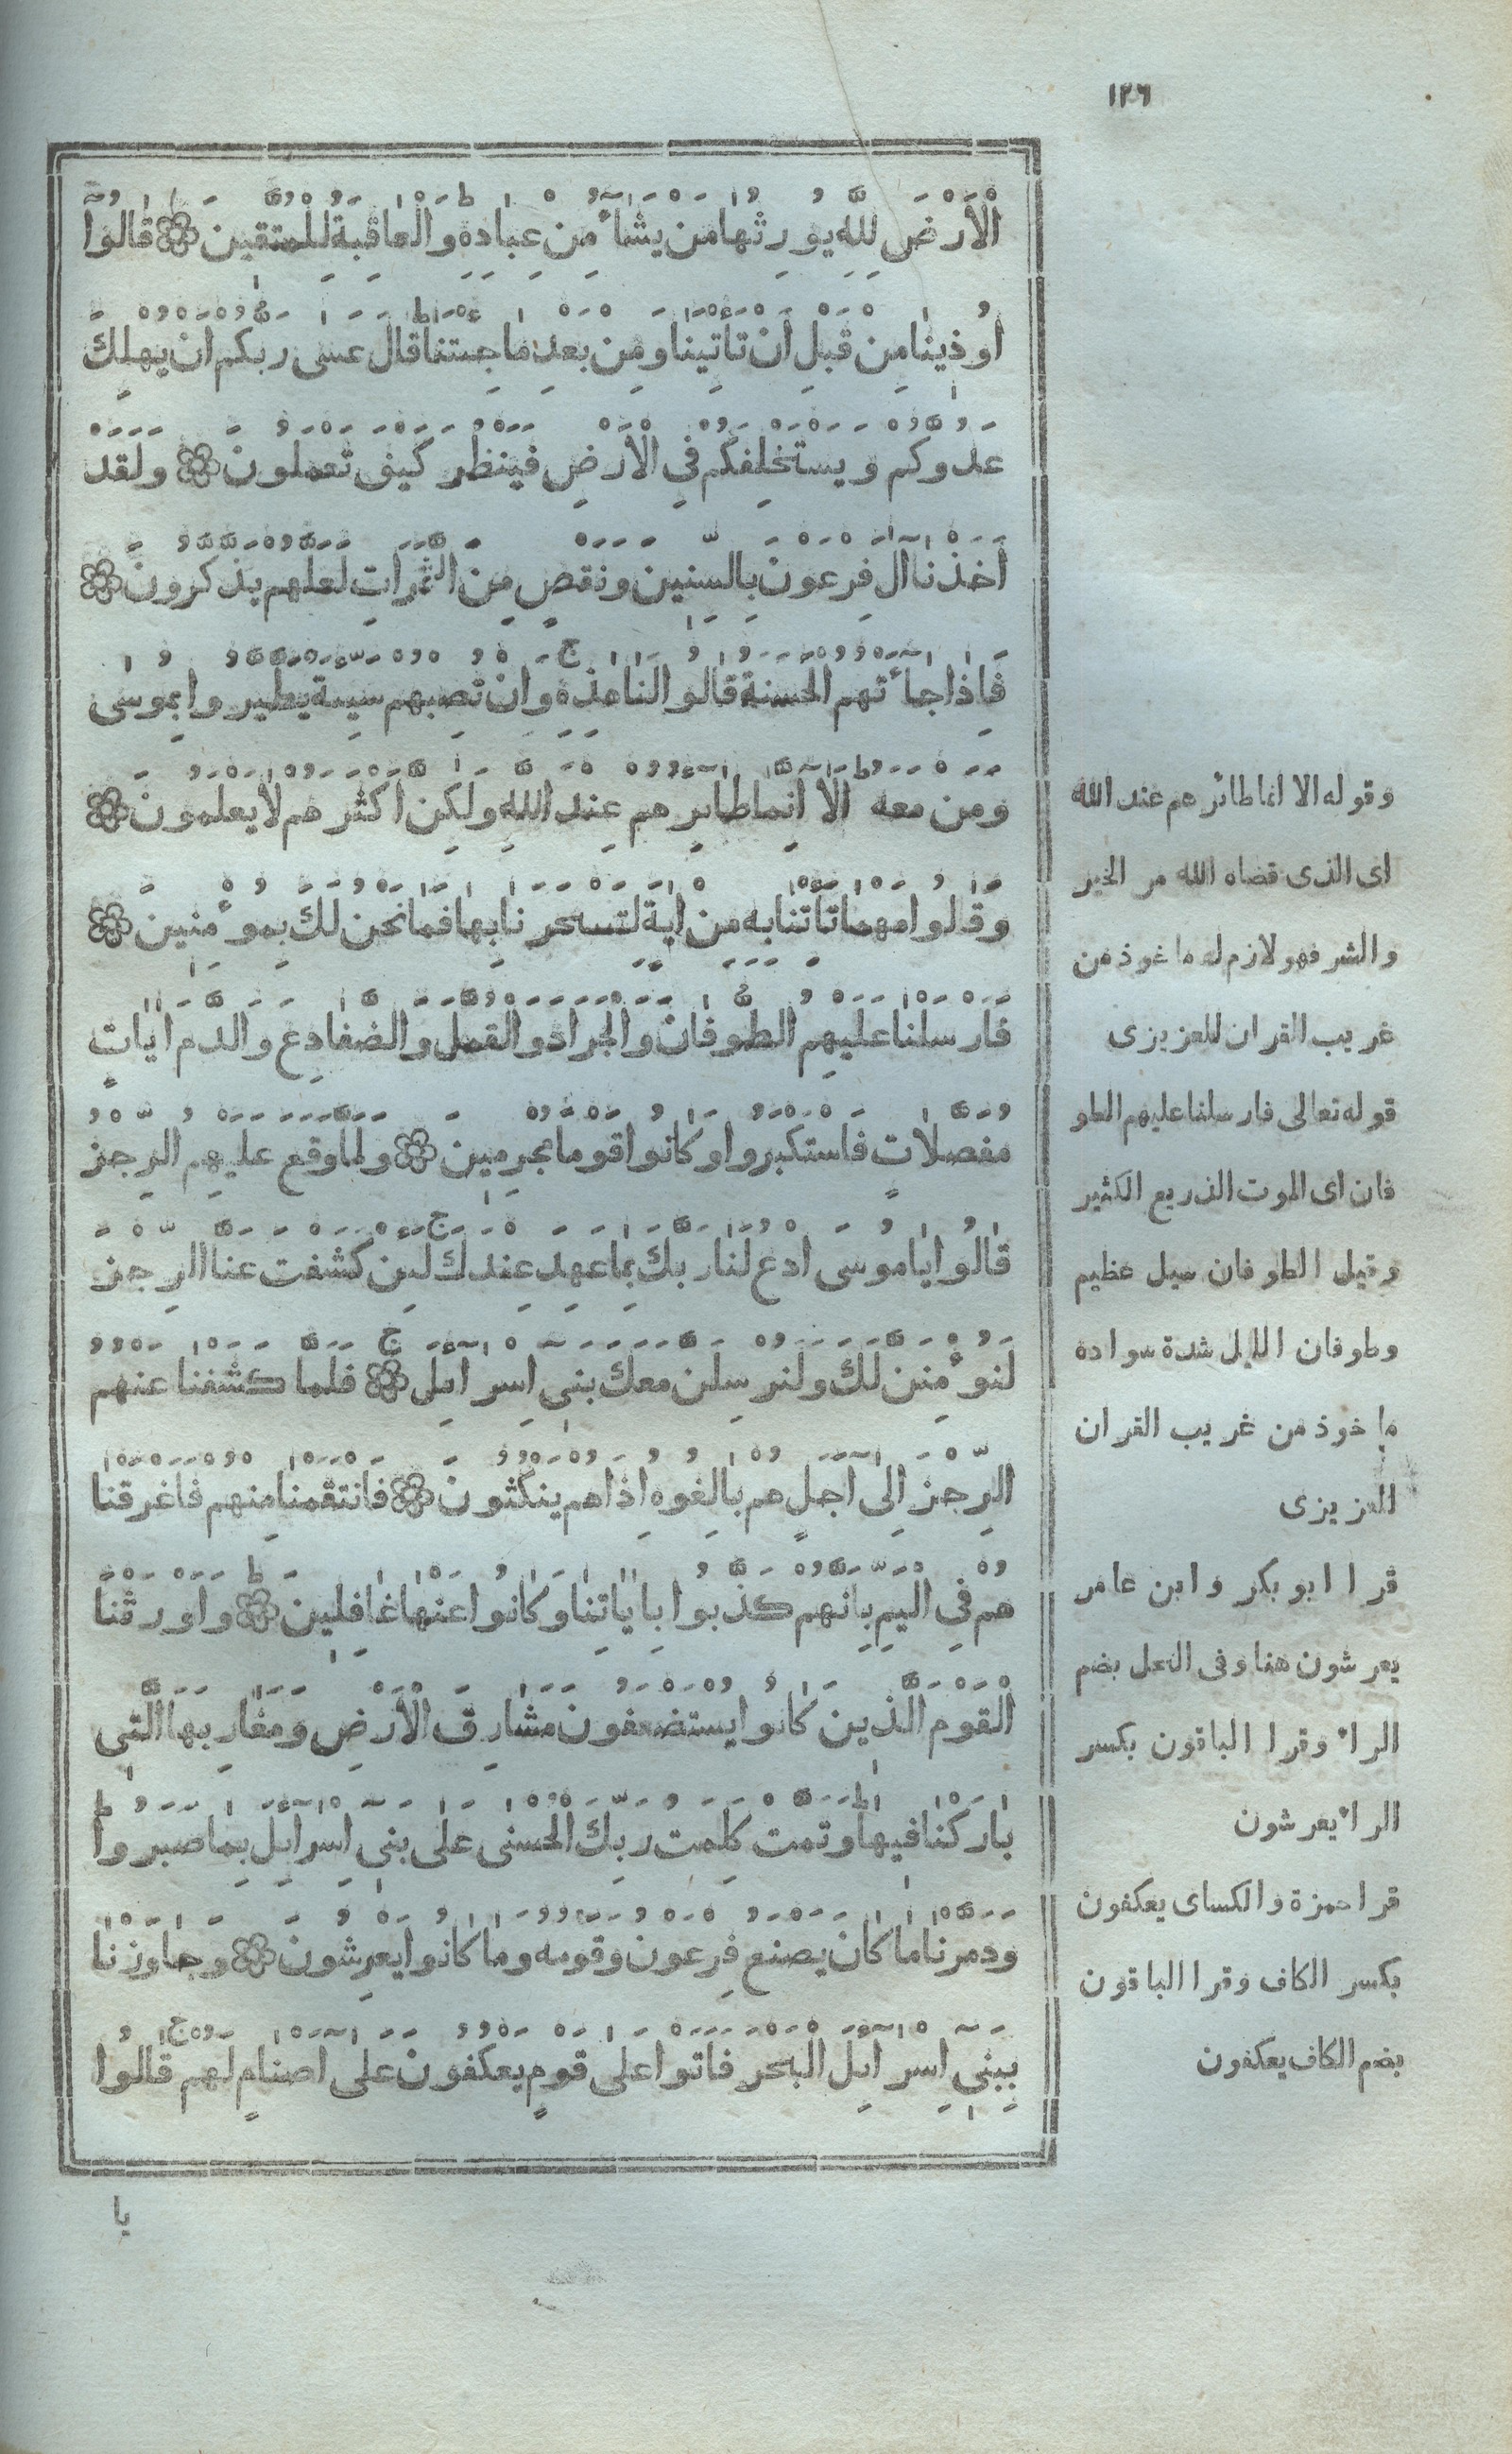 ١٢٦
الْأَرْضَ لِلَّهِ يُورِثُهَا مَنْ يَشَآءُ مِنْ عِبَادِهِ وَالْعَاقِبَةُ لِلْمُتَّقِينَ ۞ قَالُوٓا
أُوذِينَا مِنْ قَبْلِ أَنْ تَأْتِيَنَا وَمِنْ بَعْدِ مَا جِئْتَنَا قَالَ عَسَى رَبُّكُمْ أَنْ يُهْلِكَ
عَدُوَّكُمْ وَيَسْتَخْلِفَكُمْ فِي الْأَرْضِ فَيَنْظُرَ كَيْفَ تَعْمَلُونَ ۞ وَلَقَدْ
أَخَذْنَا آلَ فِرْعَوْنَ بِالسِّنِينَ وَنَقْصٍ مِنَ الثَّمَرَاتِ لَعَلَّهُمْ يَذَّكَّرُونَ ۞
فَإِذَا جَآءَتْهُمُ الْحَسَنَةُ قَالُوا لَنَا هَذِهِ ج وَإِنْ تُصِبْهُمْ سَيِّئَةٌ يَطَّيَّرُوا بِمُوسَى
وَمَنْ مَعَهُ ط أَلَآ إِنَّمَا طَائِرُهُمْ عِنْدَ اللَّهِ وَلَكِنَّ أَكْثَرَهُمْ لَا يَعْلَمُونَ ۞
وَقَالُوا مَهْمَا تَأْتِنَا بِهِ مِنْ آيَةٍ لِتَسْحَرَنَا بِهَا فَمَا نَحْنُ لَكَ بِمُؤْمِنِينَ ۞
فَأَرْسَلْنَا عَلَيْهِمُ الطُّوفَانَ وَالْجَرَادَ وَالْقُمَّلَ وَالضَّفَادِعَ وَالدَّمَ آيَاتٍ
مُفَصَّلَاتٍ فَاسْتَكْبَرُوا وَكَانُوا قَوْمًا مُجْرِمِينَ ۞ وَلَمَّا وَقَعَ عَلَيْهِمُ الرِّجْزُ
قَالُوا يَا مُوسَى ادْعُ لَنَا رَبَّكَ بِمَا عَهِدَ عِنْدَكَ ج لَئِنْ كَشَفْتَ عَنَّا الرِّجْزَ
لَنُؤْمِنَنَّ لَكَ وَلَنُرْسِلَنَّ مَعَكَ بَنِي إِسْرَآئِيلَ ج ۞ فَلَمَّا كَشَفْنَا عَنْهُمُ
الرِّجْزَ إِلَى أَجَلٍ هُمْ بَالِغُوهُ إِذَا هُمْ يَنْكُثُونَ ۞ فَانْتَقَمْنَا مِنْهُمْ فَأَغْرَقْنَا
هُمْ فِي الْيَمِّ بِأَنَّهُمْ كَذَّبُوا بِآيَاتِنَا وَكَانُوا عَنْهَا غَافِلِينَ ط ۞ وَأَوْرَثْنَا
الْقَوْمَ الَّذِينَ كَانُوا يُسْتَضْعَفُونَ مَشَارِقَ الْأَرْضِ وَمَغَارِبَهَا الَّتِي
بَارَكْنَا فِيهَا ط وَتَمَّتْ كَلِمَتُ رَبِّكَ الْحُسْنَى عَلَى بَنِي إِسْرَآئِيلَ بِمَا صَبَرُوا ط
وَدَمَّرْنَا مَا كَانَ يَصْنَعُ فِرْعَوْنُ وَقَوْمُهُ وَمَا كَانُوا يَعْرِشُونَ ۞ وَجَاوَزْنَا
بِبَنِي إِسْرَآئِيلَ الْبَحْرَ فَأَتَوْا عَلَى قَوْمٍ يَعْكُفُونَ عَلَى أَصْنَامٍ لَهُمْ ج قَالُوا
يا
وقوله الا انما طائرهم عند الله
اى الذى قضاه الله من الخير
والشر فهو لازم له ماخوذ من
غريب القران للعزيزى
قوله تعالى فارسلنا عليهم الطو
فان اى الموت الذريع الكثير
وقيل الطوفان سيل عظيم
وطوفان الليل شدة سواده
ماخوذ من غريب القران
العزيزى
قرا ابو بكر وابن عامر
يعرشون هنا وفى النحل بضم
الراء وقرا الباقون بكسر
الراء يعرشون
قرا حمزة والكساى يعكفون
بكسر الكاف وقرا الباقون
بضم الكاف يعكفون